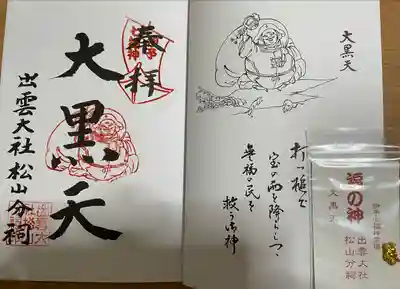 奉拝
大黒天
出雲大社松山分祠
大黒天
打つ槌で
宝の雨を降らしつつ
無福の民を
救う御神
福の神
出雲大社
松山分祠